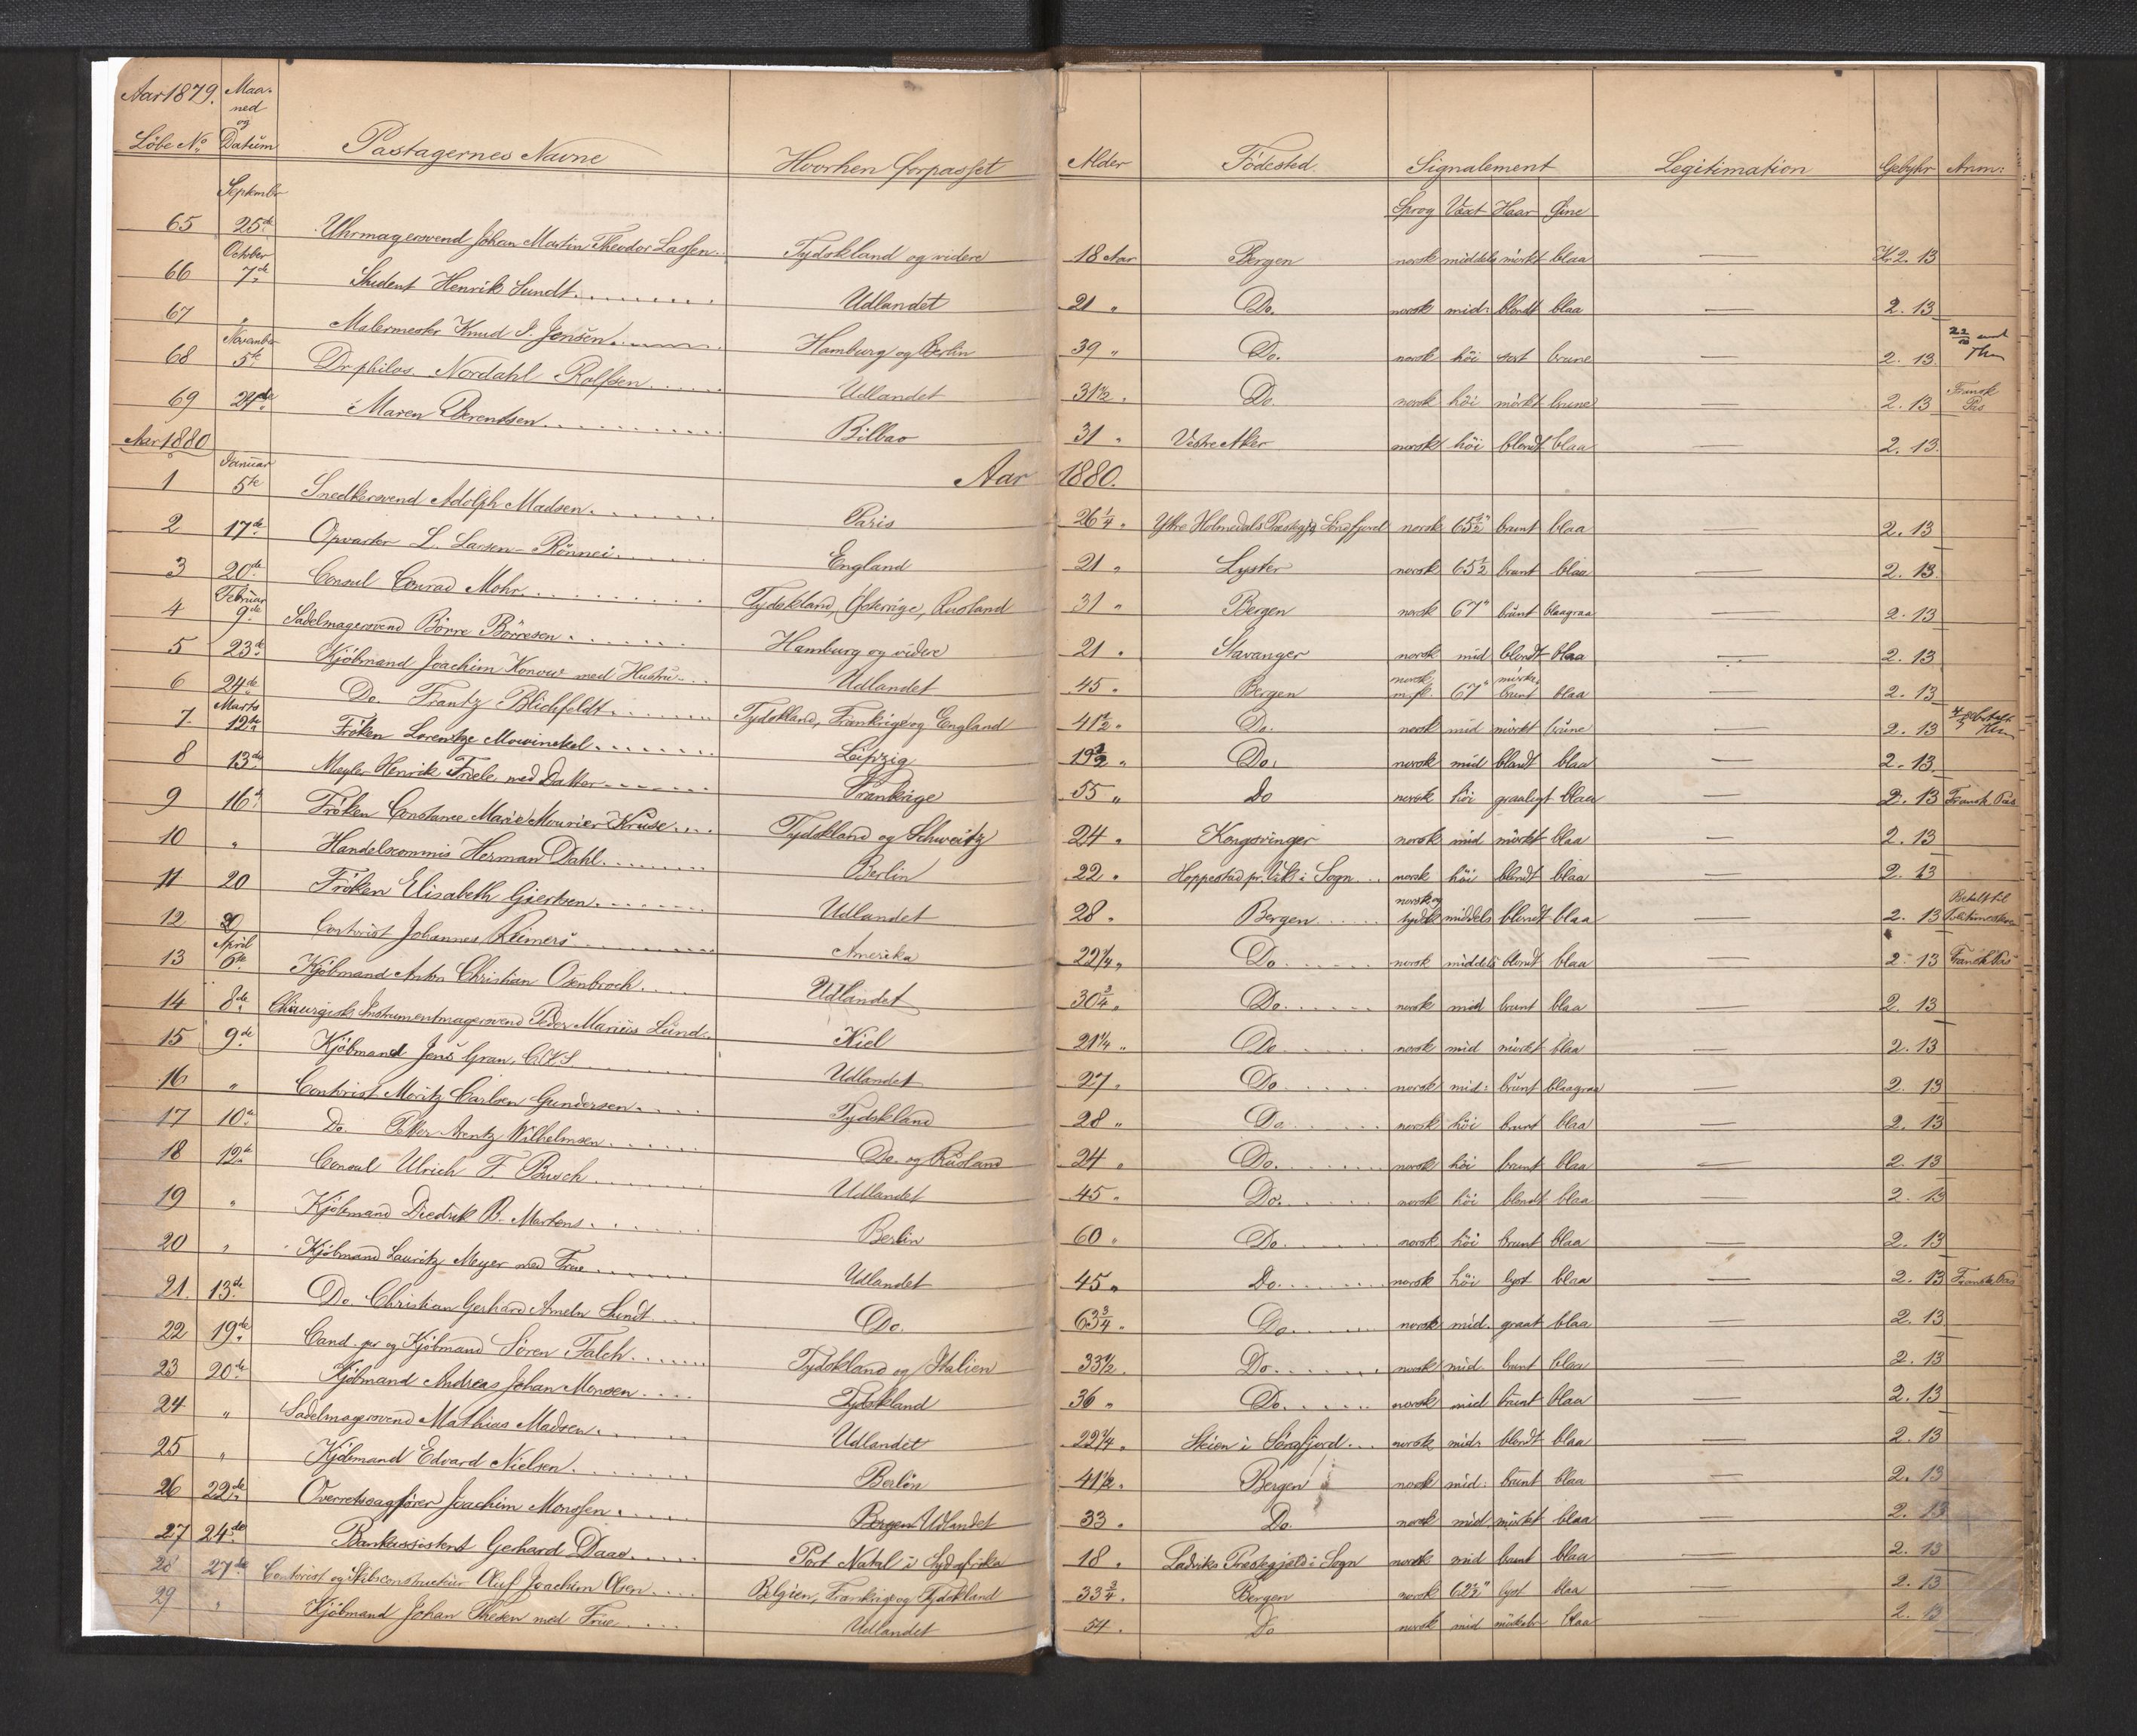 Aar 1879. Maaned og Datum
Löbe No Datum Pastagernes Navne Hvorhen forpasset Alder Födested Signalement Legitimation Gebyhr Anm:
Septembr Sprog Væxt Haar Öine
65 25de Uhrmagersvend Johan Martin Theodor Lassen Tydskland og videre 18 Aar Bergen norsk middels mörkt blaa Kr 2. 13
October
66 7de Student Henrik Sundt Udlandet 21 " Do. norsk mid: blondt blaa — 2. 13
67 " Malermester Knud J. Jensen Hamburg og Berlin 39 " Do. norsk höi sort brune — 2. 13
November
68 5te Dr philos Nordahl Rolfsen Udlandet 31 1/2 " Do. norsk höi mörkt brune — 2. 13 Fransk Pas
69 24de Maren Berentsen Bilbao 31 " Vestre Aker norsk höi blondt blaa — 2. 13
Aar 1880
Aar 1880.
Januar
1 5te Snedkersvend Adolph Madsen Paris 26 1/4 " Ytre Holmedals Præstegj. Söndfjord norsk 65 1/2" brunt blaa — 2. 13
2 17de Opvarter L. Larsen-Rönnei England 21 " Lyster norsk 65 1/2 brunt blaa — 2. 13
3 20de Consul Conrad Mohr Tydskland, Österrige, Rusland 31 " Bergen norsk 67" brunt blaagraa — 2. 13
Februar
4 9de Sadelmagersvend Börre Börresen Hamburg og videre 21 " Stavanger norsk mid blondt blaa — 2. 13
5 23de Kjöbmand Joachim Konow med Hustru Udlandet 45 " Bergen norsk m.fl. 67" mörke brunt blaa — 2. 13
6 24de Do. Frantz Blichfeldt Tydskland, Frankrige og England 41 1/2 " Do. norsk mid mörkt brune — 2. 13
Marts
7 12te Fröken Lorentze Mowinckel Leipzig 19 1/2 " Do. norsk mid blondt blaa — 2. 13
8 13de Mægler Henrik Friele med Datter Frankrige 55 " Do norsk höi graaligt blaa — 2. 13 Fransk Pas
9 16de Fröken Constance Marie Mourier Kruse Tydskland og Schweitz 24 " Kongsvinger norsk mid mörkt blaa — 2. 13
10 " Handelscommis Herman Dahl Berlin 22 " Hoppestad pr. Vik i Sogn norsk höi blondt blaa — 2. 13
11 20 Fröken Elisabeth Giertsen Udlandet 28 " Bergen norsk og tydsk middels blondt blaa — 2. 13 Betalt til Politimesteren
12 Contorist Johannes Reimers Amerika 22 1/4 " Do norsk middels blondt blaa — 2. 13 Fransk Pas
April
13 6te Kjöbmand Anton Christian Osenbroch Udlandet 30 3/4 " Do. norsk mid brunt blaa — 2. 13
14 8de Chirurgisk Instrumentmagersvend Peder Marius Lund Kiel 21 1/4 " Do norsk mid mörkt blaa — 2. 13
15 9de Kjöbmand Jens Gran, Udlandet 27 " Do norsk mid: brunt blaagraa — 2. 13
16 " Contorist Moritz Carlsen Gundersen Tydskland 28 " Do norsk höi brunt blaa — 2. 13
17 10de Do. Petter Arentz Wilhelmsen Do. og Rusland 24 " Do. norsk höi brunt blaa — 2. 13
18 12te Consul Ulrich F. Busch Udlandet 45 " Do. norsk höi blondt blaa — 2. 13
19 " Kjöbmand Diedrik B. Martens Berlin 60 " Do norsk höi brunt blaa — 2. 13
20 " Kjöbmand Lauritz Meyer med Frue Udlandet 45 " Do. norsk höi lyst blaa — 2. 13 Fransk Pas
21. 13de Do. Christian Gerhard Ameln Sundt Do. 63 3/4 " Do norsk mid. graat blaa — 2. 13
22 19de Cand. jur og Kjöbmand Sören Falch Tydskland og Italien 33 1/2 " Do norsk mid. brunt blaa — 2. 13
23 20de Kjöbmand Andreas Johan Monsen Tydskland 36 " Do. norsk mid brunt blaa — 2. 13
24 " Sadelmagersvend Mathias Madsen Udlandet 22 3/4 " Skien i norsk mid: blondt blaa — 2. 13
25 " Kjöbmand Edvard Nielsen Berlin 41 1/2 " Bergen norsk mid: brunt blaa — 2. 13
26 22de Overretssagförer Joachim Monssen Bergen Udlandet 33 " Do. norsk mid mörkt blaa — 2. 13
27 24de Bankassistent Gerhard Daae Port Natal i Sydafrika 18 " Ladviks Præstegjeld i Sogn norsk mid brunt blaa — 2. 13
28 27de Contorist og Skibsconstructeur Oluf Joachim Olsen Belgien, Frankrige og Tydskland 33 3/4 " Bergen norsk 62 1/2" lyst blaa — 2. 13
29 " Kjöbmand Johan Thesen med Frue Udlandet 54 " Do norsk mid mörkebr blaa — 2. 13